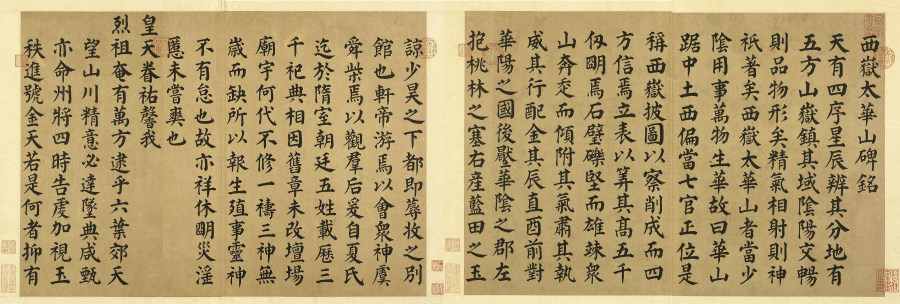 西嶽太華山碑銘
天有四序星辰辨其分地有
五方山嶽鎮其域陰陽交暢
則品物形矣精氣相射則神
祇著矣西嶽太華山者當少
陰用事萬物生華故曰華山
踞中土西偏當七官正位是
稱西嶽披圖以察削成而四
方信焉立表以筭其髙五千
仭眀焉石壁磔堅而雄竦衆
山奔走而傾附其氣肅其執
威其行配金其辰直酉前對
華陽之國後壓華陰之郡左
抱桃林之塞右産藍田之玉
諒少昊之下都即蓐牧之別
館也軒帝游焉以會衆神虞
舜柴焉以觀羣后爰自夏氏
迄於隋室朝廷五姓載歷三
千祀典相因舊章未改壇場
廟宇何代不修一禱三神無
歲而缺所以報生殖事靈神
不有怠也故亦祥休眀災淫
慝未嘗爽也
皇天眷祐謦我
烈祖奄有萬方逮乎六葉郊天
望山川精意必達墜典咸甄
亦命州將四時告虔加視玉
秩進號金天若是何者抑有